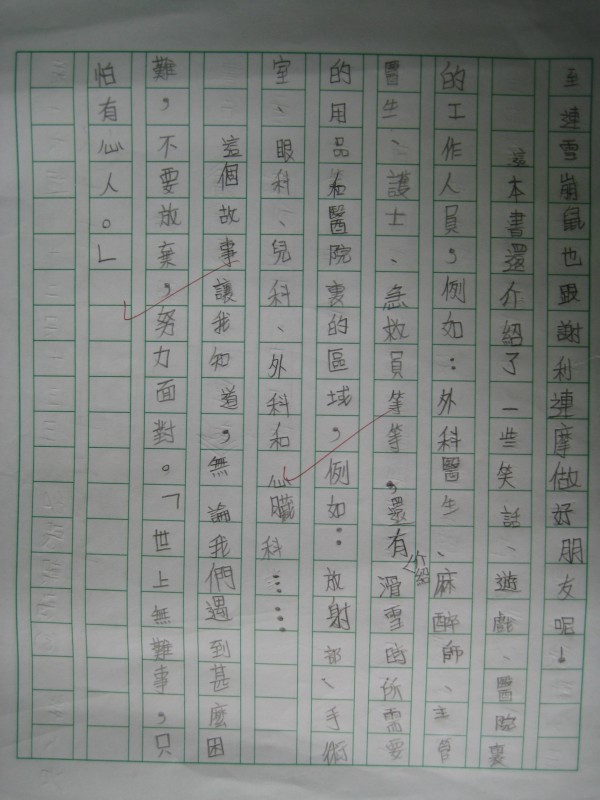 至連雪崩鼠也跟謝利連摩做好朋友呢！
這本書還介紹了一些笑話、遊戲、醫院裏
的工作人員，例如：外科醫生、麻醉師、主管
醫生、護士、急救員等等，還有介紹滑雪時所需要
的用品和醫院裏的區域，例如：放射部、手術
室、眼科、兒科、外科和心臟科……
這個故事讓我知道，無論我們遇到甚麼困
難，不要放棄，努力面對。「世上無難事，只
怕有心人。」